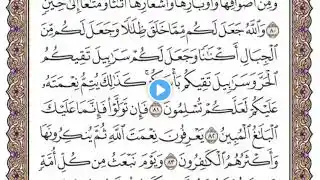 وَمِنْ أَصْوَافِهَا وَأَوْبَارِهَا وَأَشْعَارِهَا أَثَاثًا وَمَتَاعًا إِلَىٰ حِينٍ
۝٨٠ وَاللَّهُ جَعَلَ لَكُم مِّمَّا خَلَقَ ظِلَالًا وَجَعَلَ لَكُم مِّنَ
الْجِبَالِ أَكْنَانًا وَجَعَلَ لَكُمْ سَرَابِيلَ تَقِيكُمُ
الْحَرَّ وَسَرَابِيلَ تَقِيكُم بَأْسَكُمْ كَذَٰلِكَ يُتِمُّ نِعْمَتَهُ
عَلَيْكُمْ لَعَلَّكُمْ تُسْلِمُونَ ۝٨١ فَإِن تَوَلَّوْا فَإِنَّمَا عَلَيْكَ
الْبَلَاغُ الْمُبِينُ ۝٨٢ يَعْرِفُونَ نِعْمَتَ اللَّهِ ثُمَّ يُنكِرُونَهَا
وَأَكْثَرُهُمُ الْكَافِرُونَ ۝٨٣ وَيَوْمَ نَبْعَثُ مِن كُلِّ أُمَّةٍ